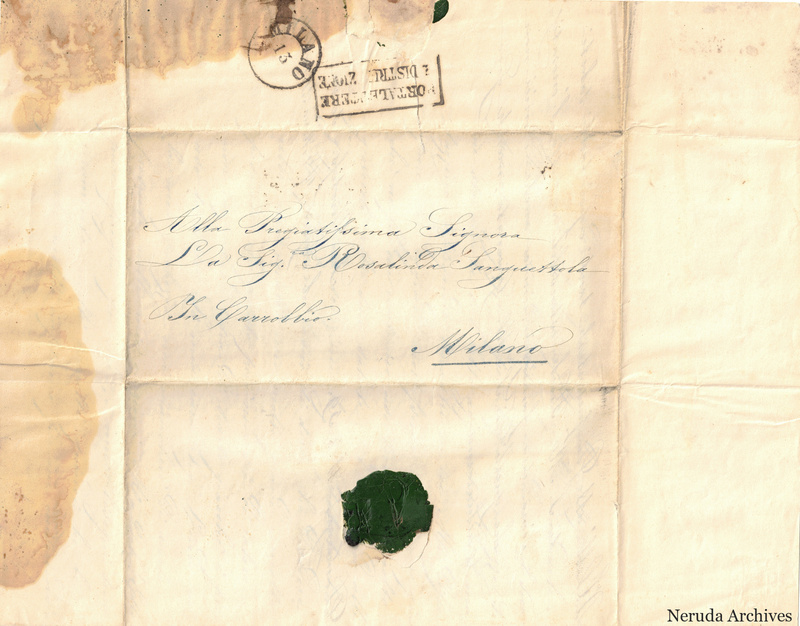 MILANO
13
PORTALETTERE
E DISTRIBUZIONE
Alla Pregiatissima Signora
La Sig.ra Rosalinda Sanguettola
In Carrobbio.
Milano
Neruda Archives